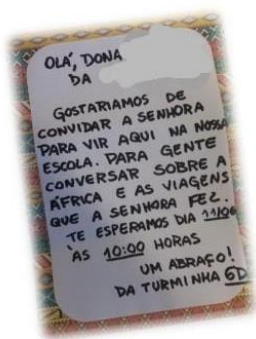 OLÁ, DONA
DA
GOSTARIAMOS DE
CONVIDAR A SENHORA
PARA VIR AQUI NA NOSSA
ESCOLA. PARA GENTE
CONVERSAR SOBRE A
ÁFRICA E AS VIAGENS
QUE A SENHORA FEZ.
TE ESPERAMOS DIA 11/06
ÀS 10:00 HORAS
UM ABRAÇO!
DA TURMINHA 6D